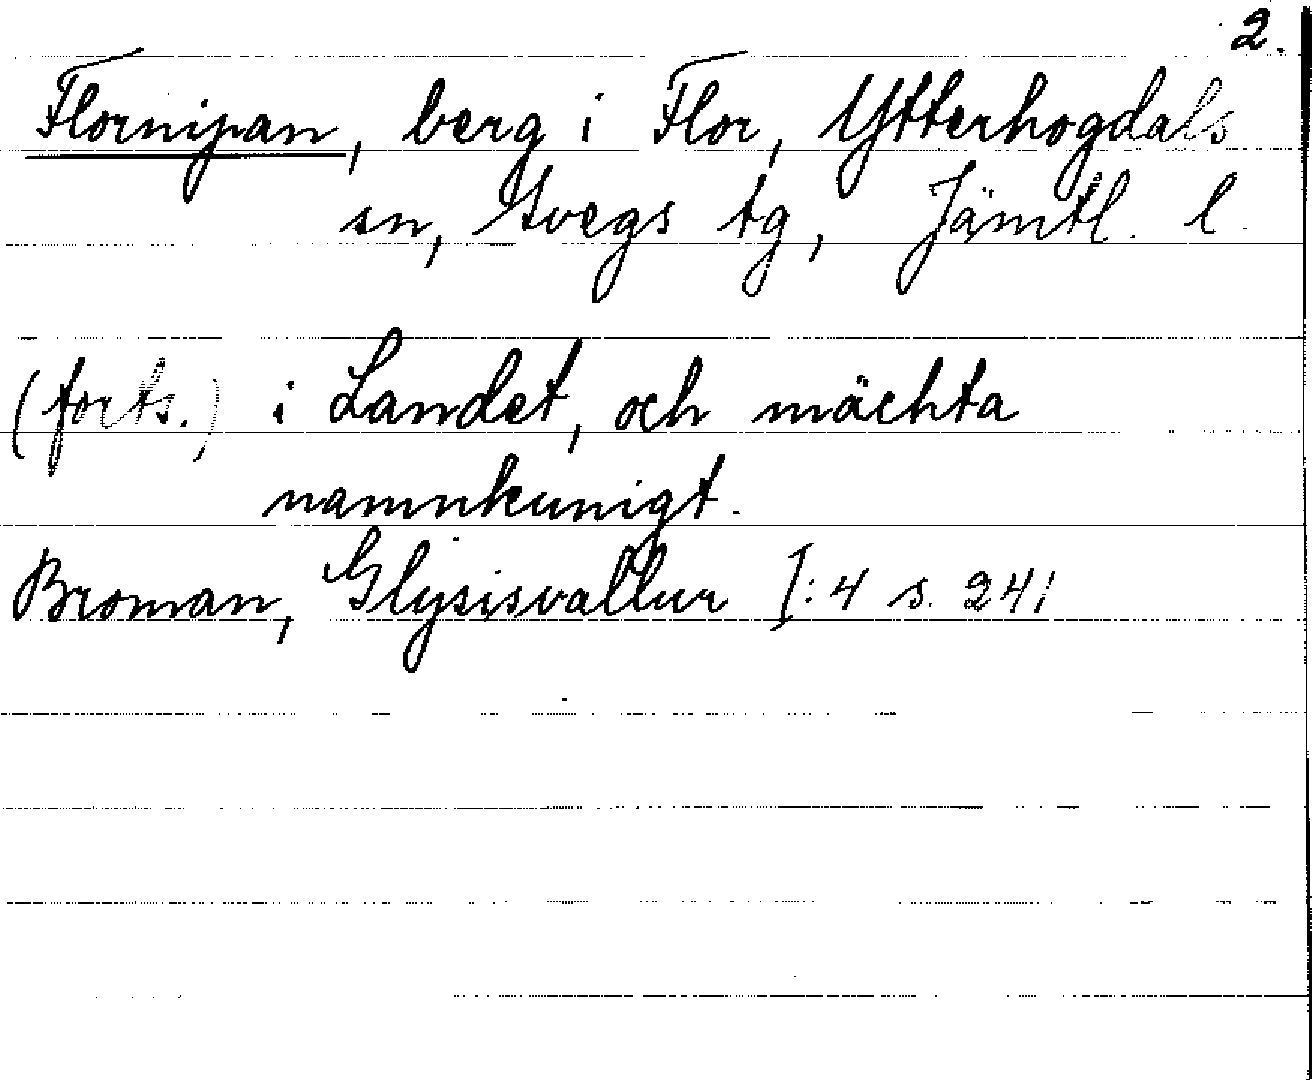 2.
Flornipan, berg i Flor, Ytterhogdals
sn, Svegs tg, Jämtl. l.
(forts.) i Landet, och mächta
namnkunigt.
Broman, Glysisvallur I:4 s. 241